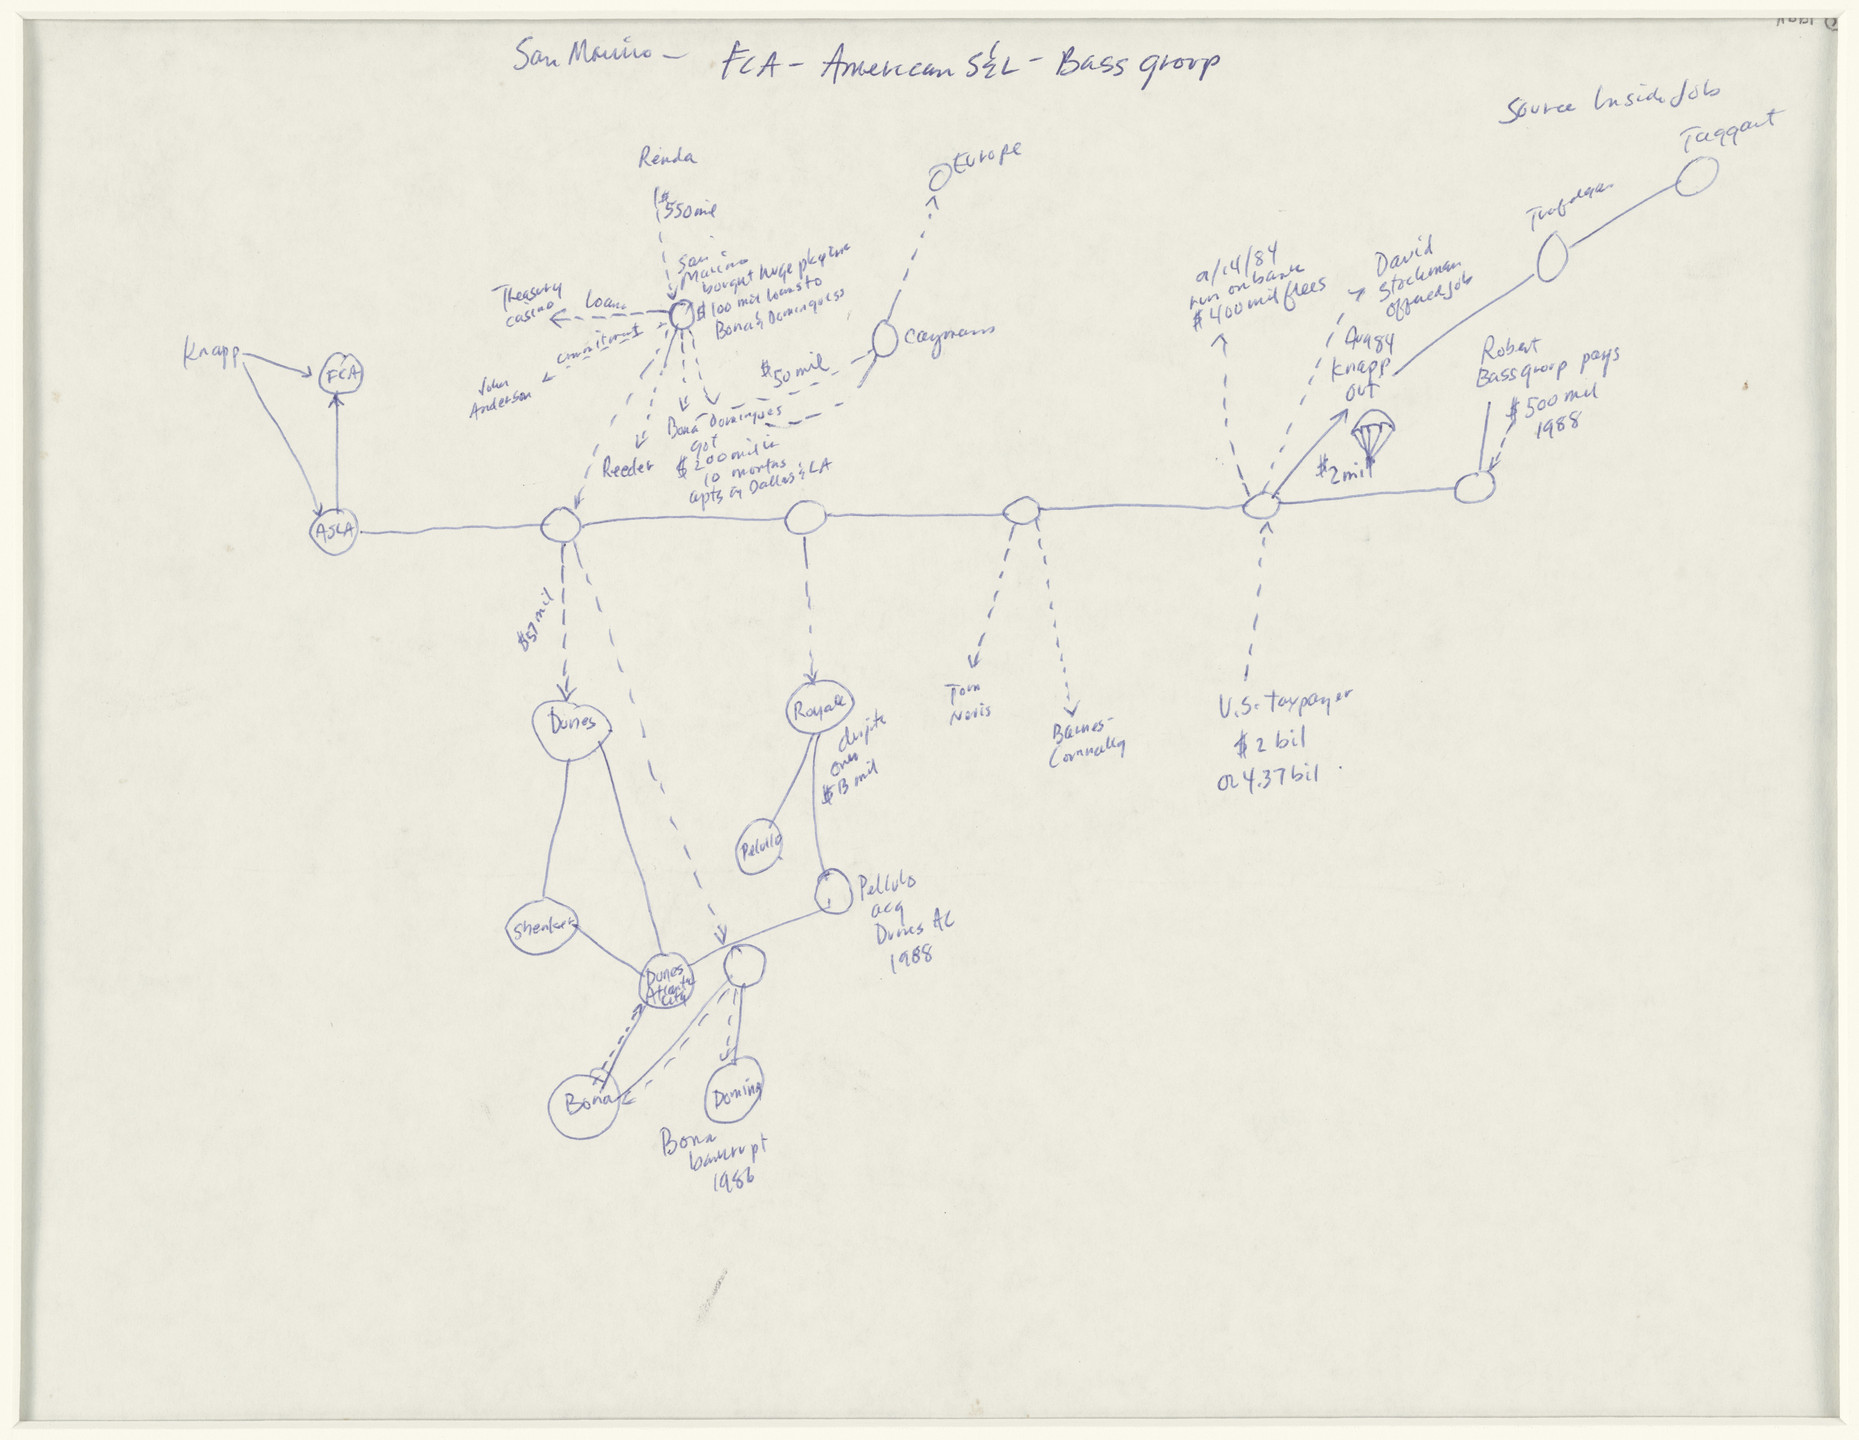 San Marino — FCA - American S&L - Bass group
Source Inside Job
Taggart
Trafalgar
Europe
Renda
$550 mil
San
Marino
bought huge
$100 mil loans to
Bona & Dominguess
Treasury
casino
Loan
commitment
John
Anderson
Knapp
FCA
ASLA
Caymans
$50 mil
Reeder
Bona Domingues
got
$200 mil in
10 months
apts in Dallas & LA
9/14/84
run on bank
$400 mil flees
David
Stockman
offered job
Aug 84
Knapp
out
$2 mil
Robert
Bass group pays
$500 mil
1988
$57 mil
Dunes
Royale
despite
over
$13 mil
Tom
Nevis
Barnes-
Connally
U.S. taxpayer
$2 bil
or 4.37 bil
Pelullo
Shenker
Pellulo
acq
Dunes AC
1988
Dunes
Atlantic
City
Bona
Doming
Bona
bankrupt
1986